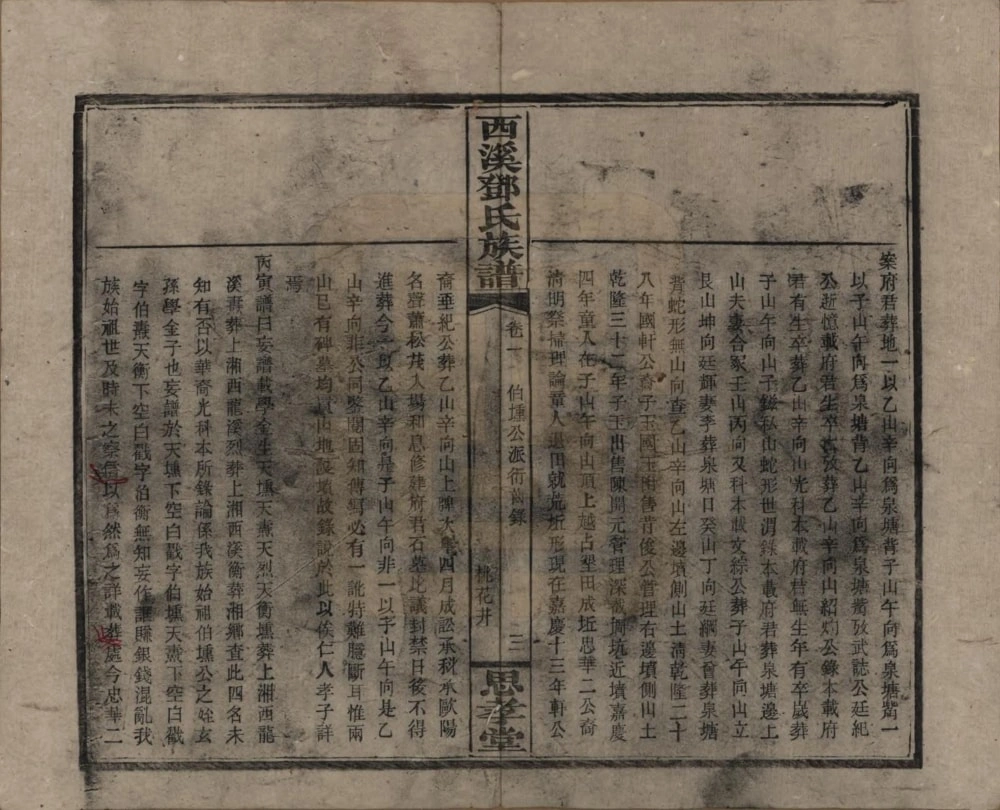 案府君葬地一以乙山辛向爲泉塘背子山午向爲泉塘嘴一
以子山午向爲泉塘背乙山辛向爲泉塘嘴攷武誌公廷紀
公逝憶載府君生卒攷葬乙山辛向山紹炯公錄本載府
君有生卒葬乙山辛向山光科本載府君無生年有卒歲葬
子山午向山子鎡私山蛇形世渭綠本載府君葬泉塘邊上
山夫妻合冢壬山丙向又科本載文綜公葬子山午向山立
艮山坤向廷輝妻李葬泉塘日癸山丁向廷綱妻曾葬泉塘
背蛇形無山向查乙山辛向山左邊墳側山土清乾隆二十
八年國軒公裔子玉國玉附售背俊公管理右邊墳側山土
乾隆三十二年子玉出售陳開元管理深載闹坑近墳嘉慶
四年童人在子山午向山頂上越占壂田成坵思華二公奇
清明祭掃理論童人退田就荒坵形現在嘉慶十三年軒公
裔垂紀公葬乙山辛向山上碑大 四月成訟承科承歐陽
名聲蕭松茂入場和息修建府君石墓比議封禁日後不得
進葬今之以乙山辛向是子山午向非一以子山午向是乙
山辛向非公同鑒閣固知傳寫必有一訛特難臆斷耳惟兩
山已有碑墓均 山地誕 故錄說於此以俟仁人孝子詳
焉
丙寅譜曰妄譜載學金生天壎天燾天烈天衡壎葬上湘西龍
溪壽葬上湘西龍溪烈葬上湘西溪衡葬湘鄉查此四名未
知有否以華裔光科本所錄論係我族始祖伯壎公之姪玄
孫學金子也妄譜於天壎下空白戳字伯壎天燾下空白戳
字伯燾天衡下空白戳字泊衡無知妄作誰賺銀錢混亂我
族始祖世及時未之察信以爲然爲之詳載葬處今忠華二
西溪鄧氏族譜
卷一
伯壎公派衍 錄
桃花井
三
思孝堂